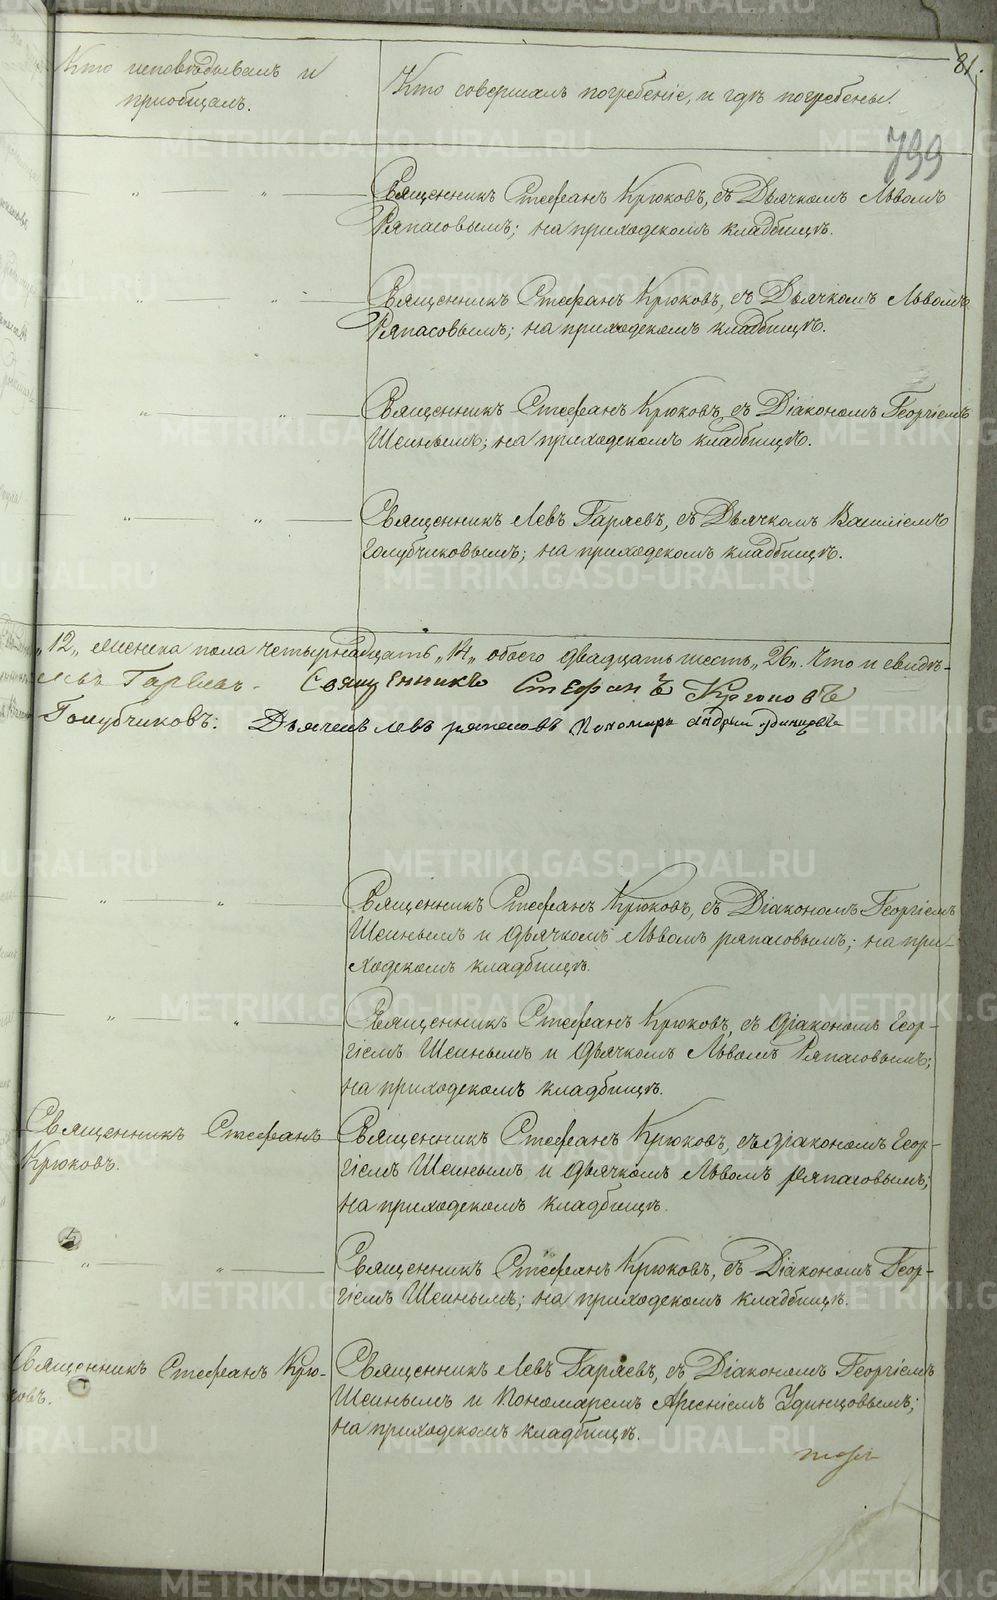 81.
Кто исповѣдывалъ и
пріобщалъ.
Кто совершалъ погребеніе, и гдѣ погребены.
799
Священникъ Стефанъ Крюковъ, съ Дьячкомъ Львомъ
Ряпасовымъ; на приходскомъ кладбищѣ.
Священникъ Стефанъ Крюковъ, съ Дьячкомъ Львомъ
Ряпасовымъ; на приходскомъ кладбищѣ.
Священникъ Стефанъ Крюковъ, съ Діакономъ Георгіемъ
Шеинымъ; на приходскомъ кладбищѣ.
Священникъ Левъ Гаряевъ, съ Дьячкомъ Василіемъ
Голубчиковымъ; на приходскомъ кладбищѣ.
„12„ женска пола четырнадцать „14„ обоего двадцать шесть „26„. Что и свидѣ-
Левъ Гаряевъ. Священникъ Стефанъ Крюковъ
Голубчиковъ. Дьячекъ Левъ Ряпасовъ Пономарь Удинцовъ
Священникъ Стефанъ Крюковъ, съ Діакономъ Георгіемъ
Шеинымъ и дьячкомъ Львомъ Ряпасовымъ; на при-
ходскомъ кладбищѣ.
Священникъ Стефанъ Крюковъ, съ діакономъ Геор-
гіемъ Шеинымъ и дьячкомъ Львомъ Ряпасовымъ;
на приходскомъ кладбищѣ.
Священникъ Стефанъ
Крюковъ.
Священникъ Стефанъ Крюковъ, съ діакономъ Геор-
гіемъ Шеинымъ и дьячкомъ Львомъ Ряпасовымъ;
на приходскомъ кладбищѣ.
Священникъ Стефанъ Крюковъ, съ Діакономъ Геор-
гіемъ Шеинымъ; на приходскомъ кладбищѣ.
Священникъ Стефанъ Крю-
ковъ.
Священникъ Левъ Гаряевъ, съ Діакономъ Георгіемъ
Шеинымъ и Пономаремъ Арсеніемъ Удинцовымъ;
на приходскомъ кладбищѣ.
METRIKI.GASO-URAL.RU